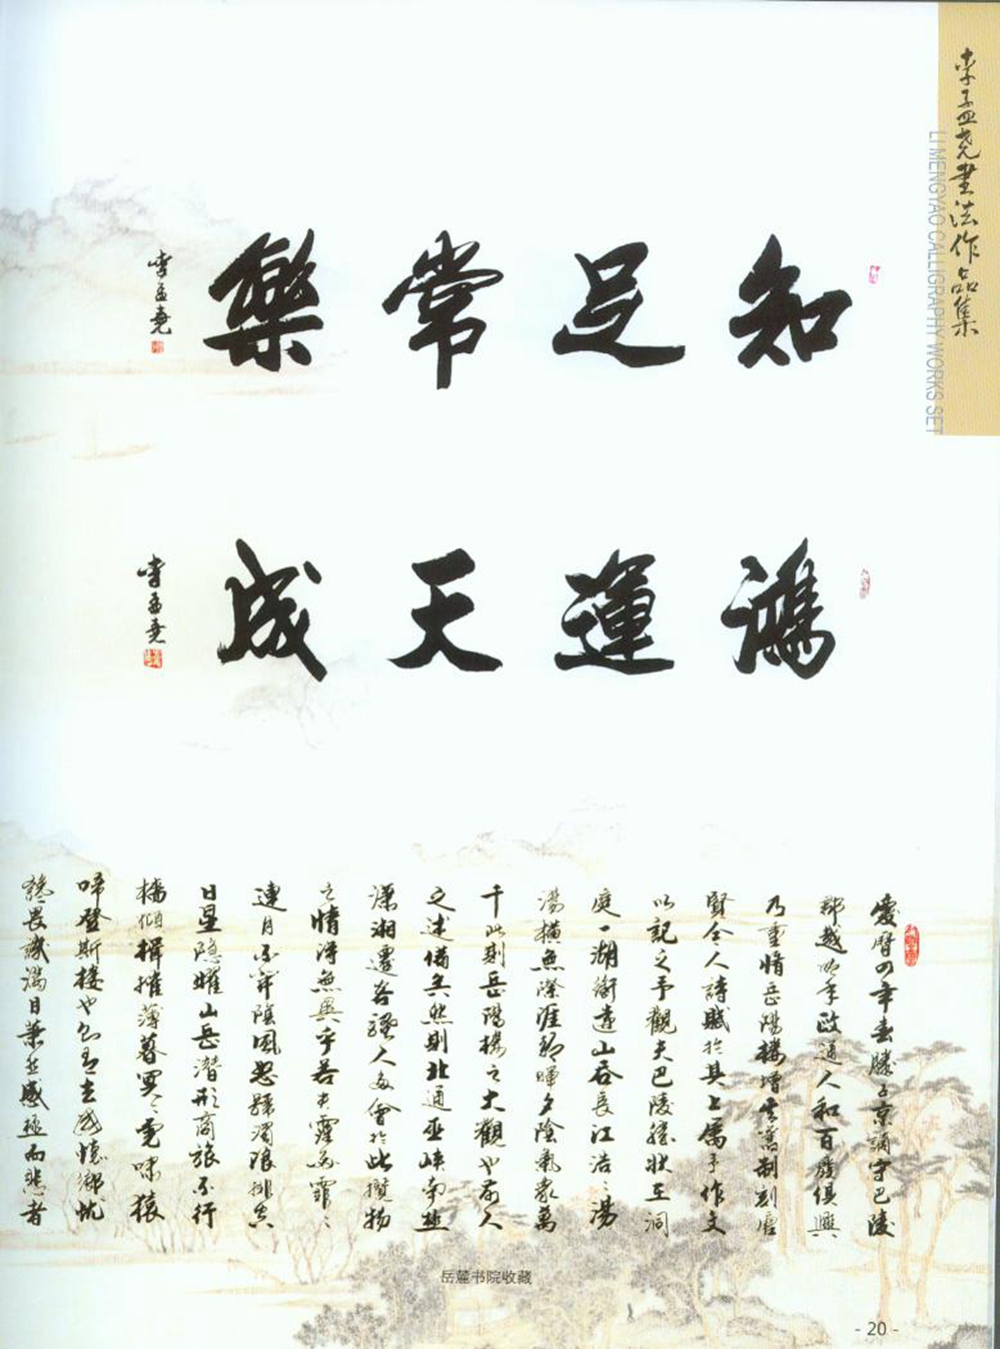 李孟尧书法作品集
LI MENGYAO CALLIGRAPHY WORKS SET
知足常樂
李孟堯
鴻運天成
李孟堯
慶曆四年春滕子京謫守巴陵
郡越明年政通人和百廢俱興
乃重脩岳陽樓增其舊制刻唐
賢今人詩賦於其上屬予作文
以記之予觀夫巴陵勝狀在洞
庭一湖銜遠山吞長江浩浩湯
湯橫無際涯朝暉夕陰氣象萬
千此則岳陽樓之大觀也前人
之述備矣然則北通巫峽南極
瀟湘遷客騷人多會於此攬物
之情得無異乎若夫霪雨霏霏
連月不開陰風怒號濁浪排空
日星隱耀山岳潛形商旅不行
檣傾楫摧薄暮冥冥虎嘯猿
啼登斯樓也則有去國懷鄉憂
讒畏譏滿目蕭然感極而悲者
岳麓书院收藏
- 20 -